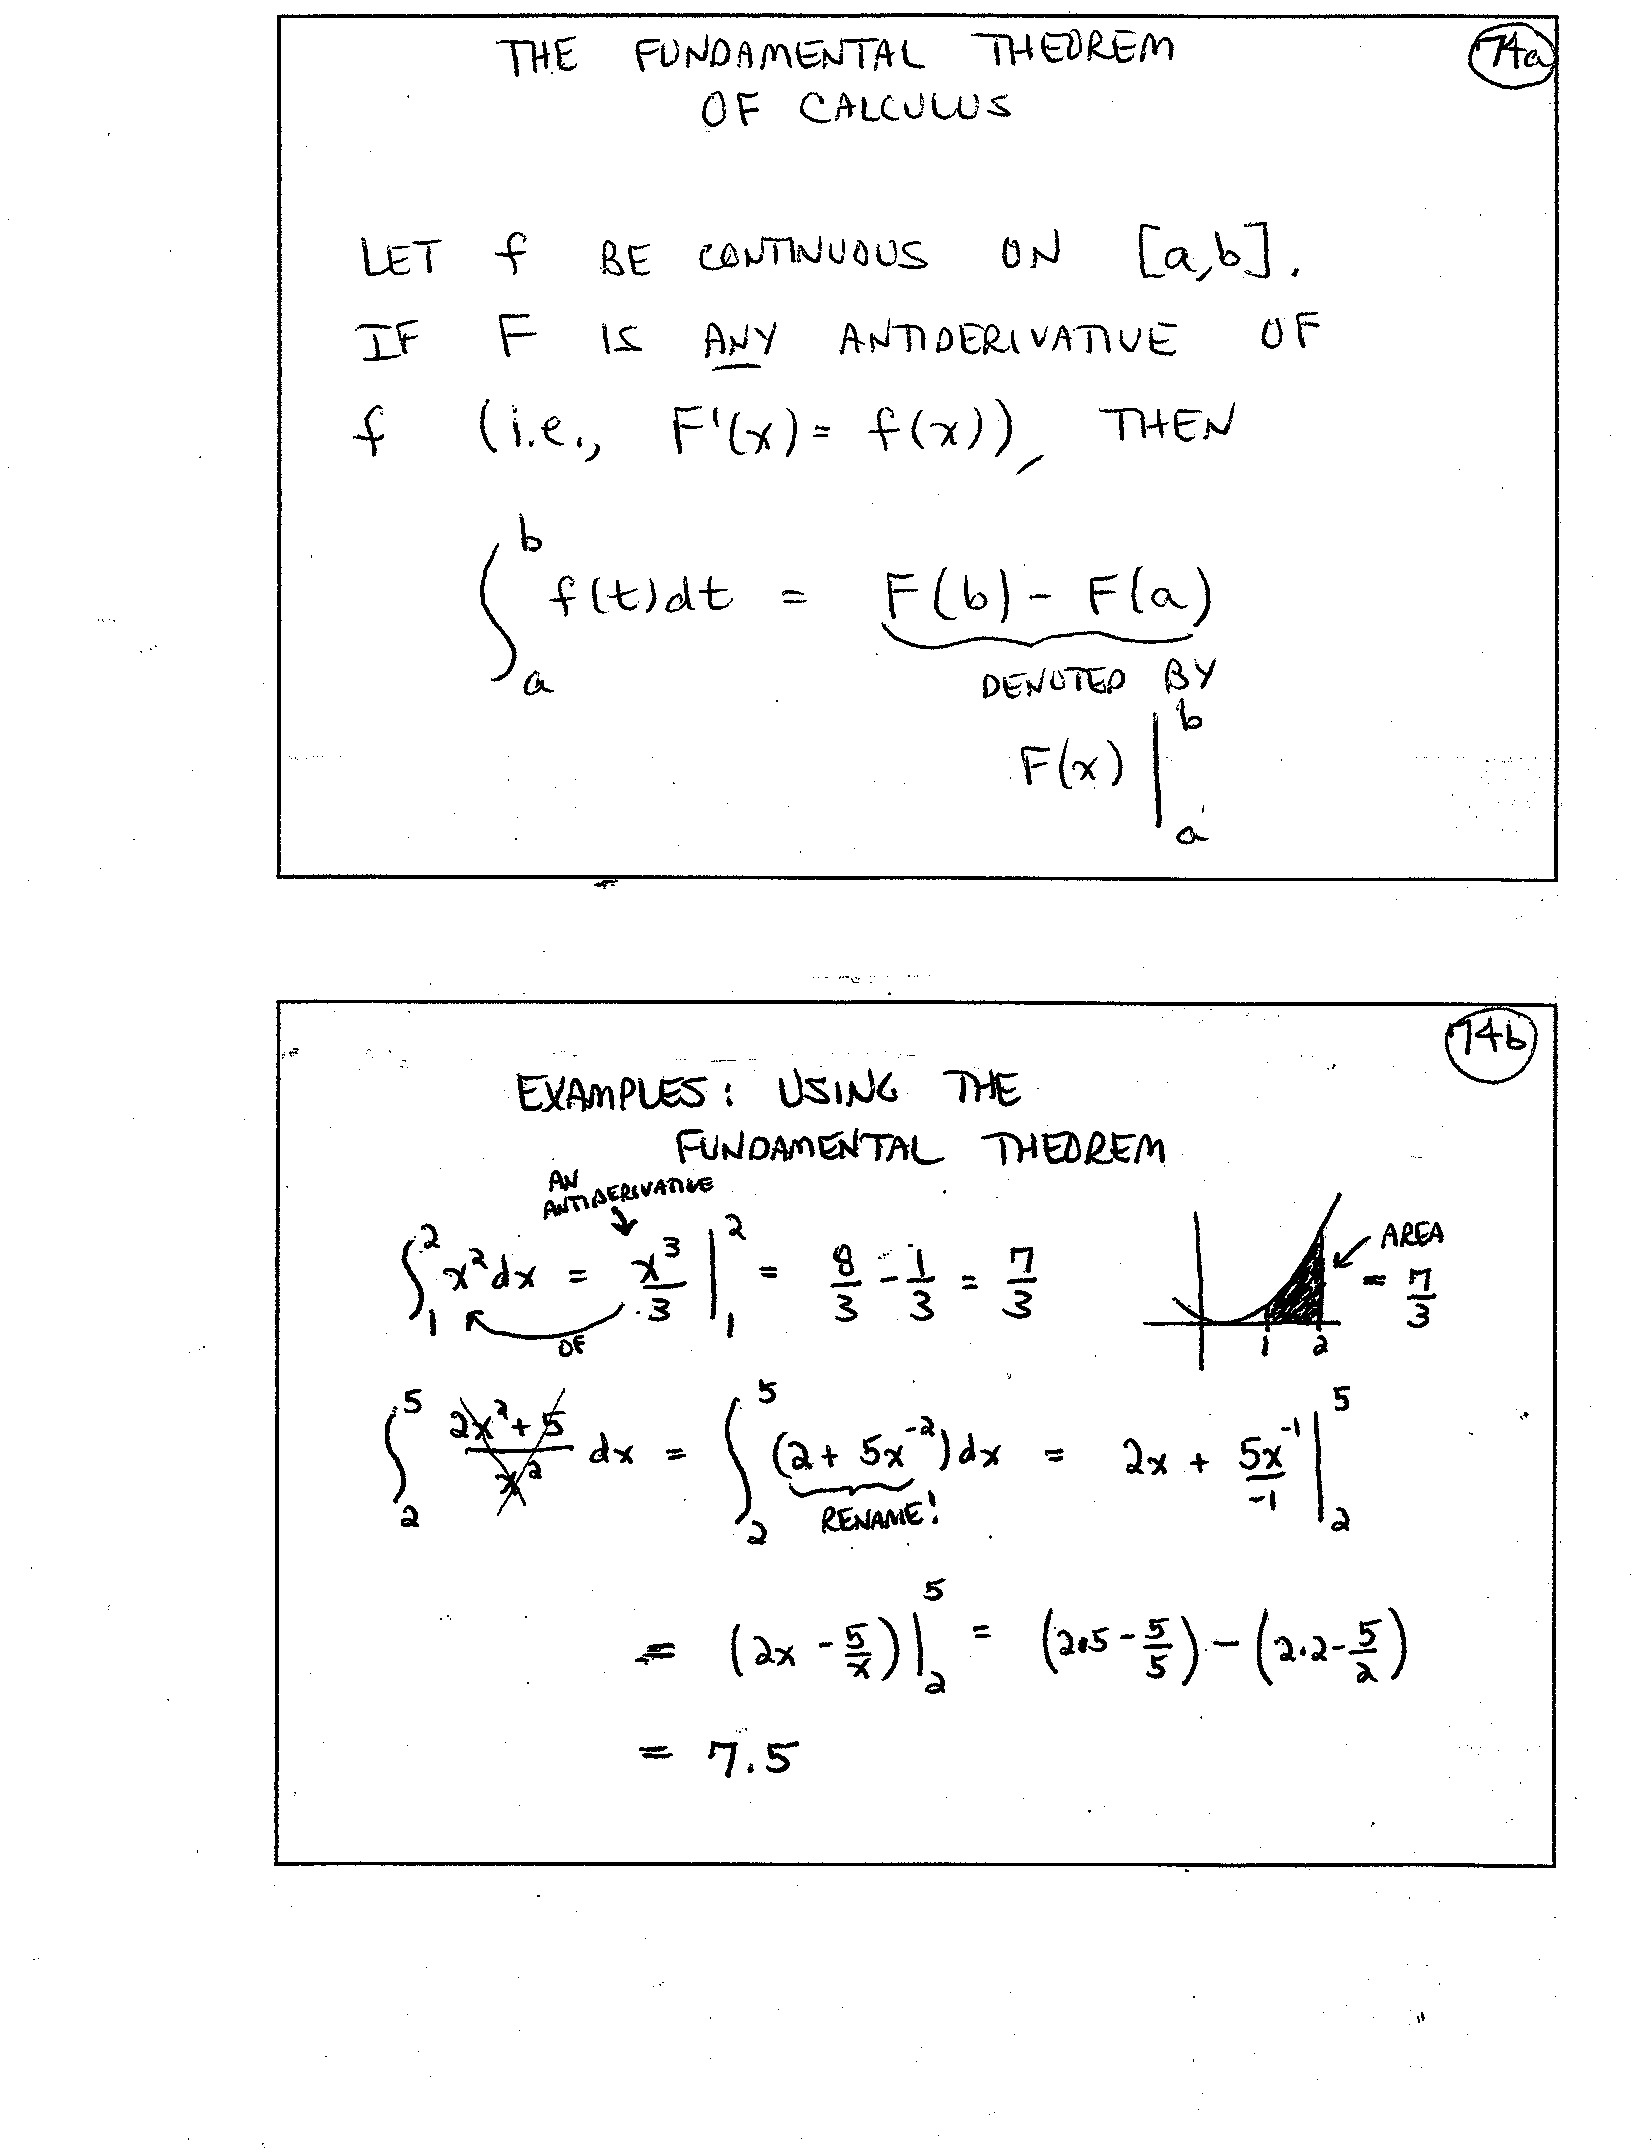 74a
THE FUNDAMENTAL THEOREM
OF CALCULUS
LET f BE CONTINUOUS ON [a,b].
IF F IS ANY ANTIDERIVATIVE OF
f (i.e., F'(x) = f(x)), THEN
∫_a^b f(t)dt = F(b) - F(a)
DENOTED BY
F(x) |_a^b
74b
EXAMPLES: USING THE
FUNDAMENTAL THEOREM
AN
ANTIDERIVATIVE
∫_1^2 x²dx = x³/3 |_1^2 = 8/3 - 1/3 = 7/3
OF
AREA
= 7/3
1 2
∫_2^5 (2x²+5)/x² dx = ∫_2^5 (2 + 5x⁻²)dx = 2x + 5x⁻¹/-1 |_2^5
RENAME!
= (2x - 5/x)|_2^5 = (2·5 - 5/5) - (2·2 - 5/2)
= 7.5